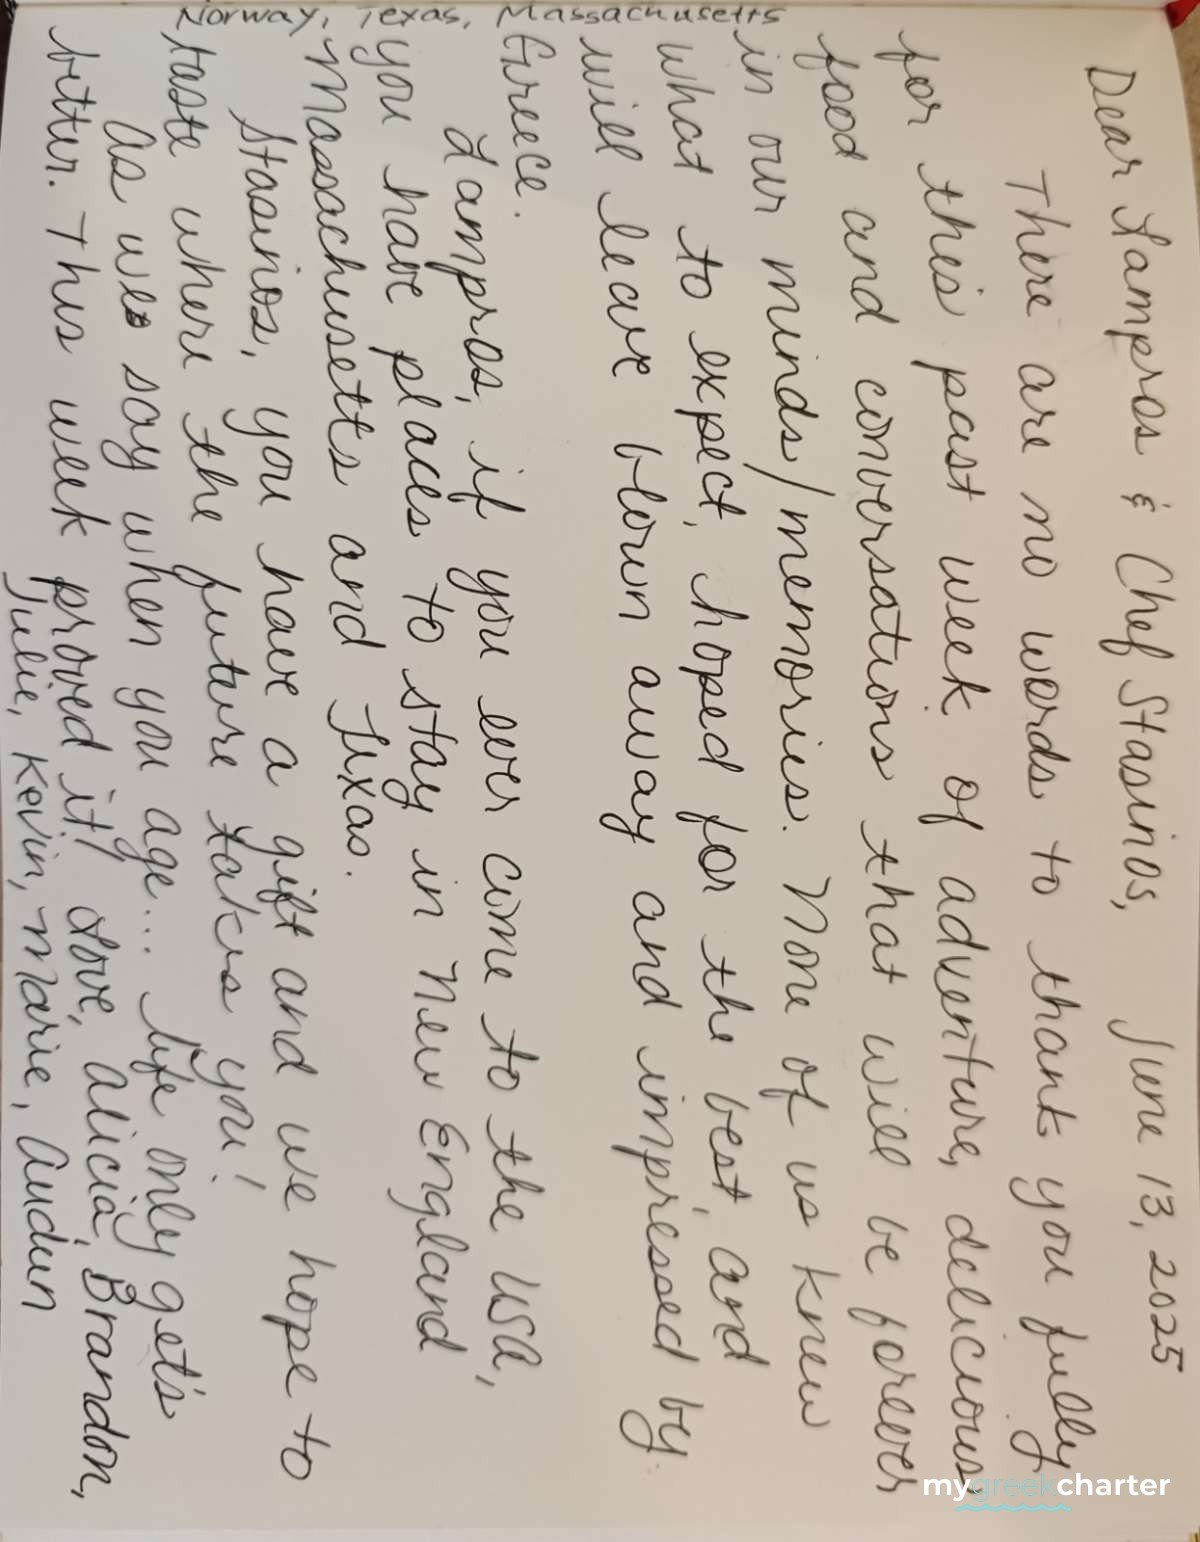 Dear Lampros & Chef Stasinos, June 13, 2025
There are no words to thank you fully
for this past week of adventure, delicious
food and conversations that will be forever
in our minds/memories. None of us knew
what to expect, hoped for the best, and
will leave blown away and impressed by
Greece.
Lampros, if you ever come to the USA,
you have places to stay in New England
Massachusetts and Texas.
Stasinos, you have a gift and we hope to
taste where the future takes you!
As we say when you age... life only get's
better. This week proved it! Love, Alicia, Brandon,
Julie, Kevin, Marie, Audun
Norway, Texas, Massachusetts
mygreekcharter